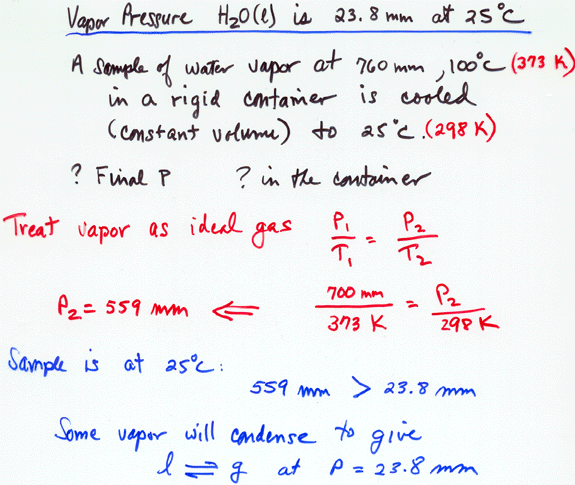 Vapor Pressure H₂O(l) is 23.8 mm at 25°C
A sample of water vapor at 760 mm, 100°C (373 K)
in a rigid container is cooled
(constant volume) to 25°C. (298 K)
? Final P ? in the container
Treat vapor as ideal gas P₁/T₁ = P₂/T₂
P₂ = 559 mm ⇐ 700 mm/373 K = P₂/298 K
Sample is at 25°C:
559 mm > 23.8 mm
Some vapor will condense to give
l ⇌ g at P = 23.8 mm